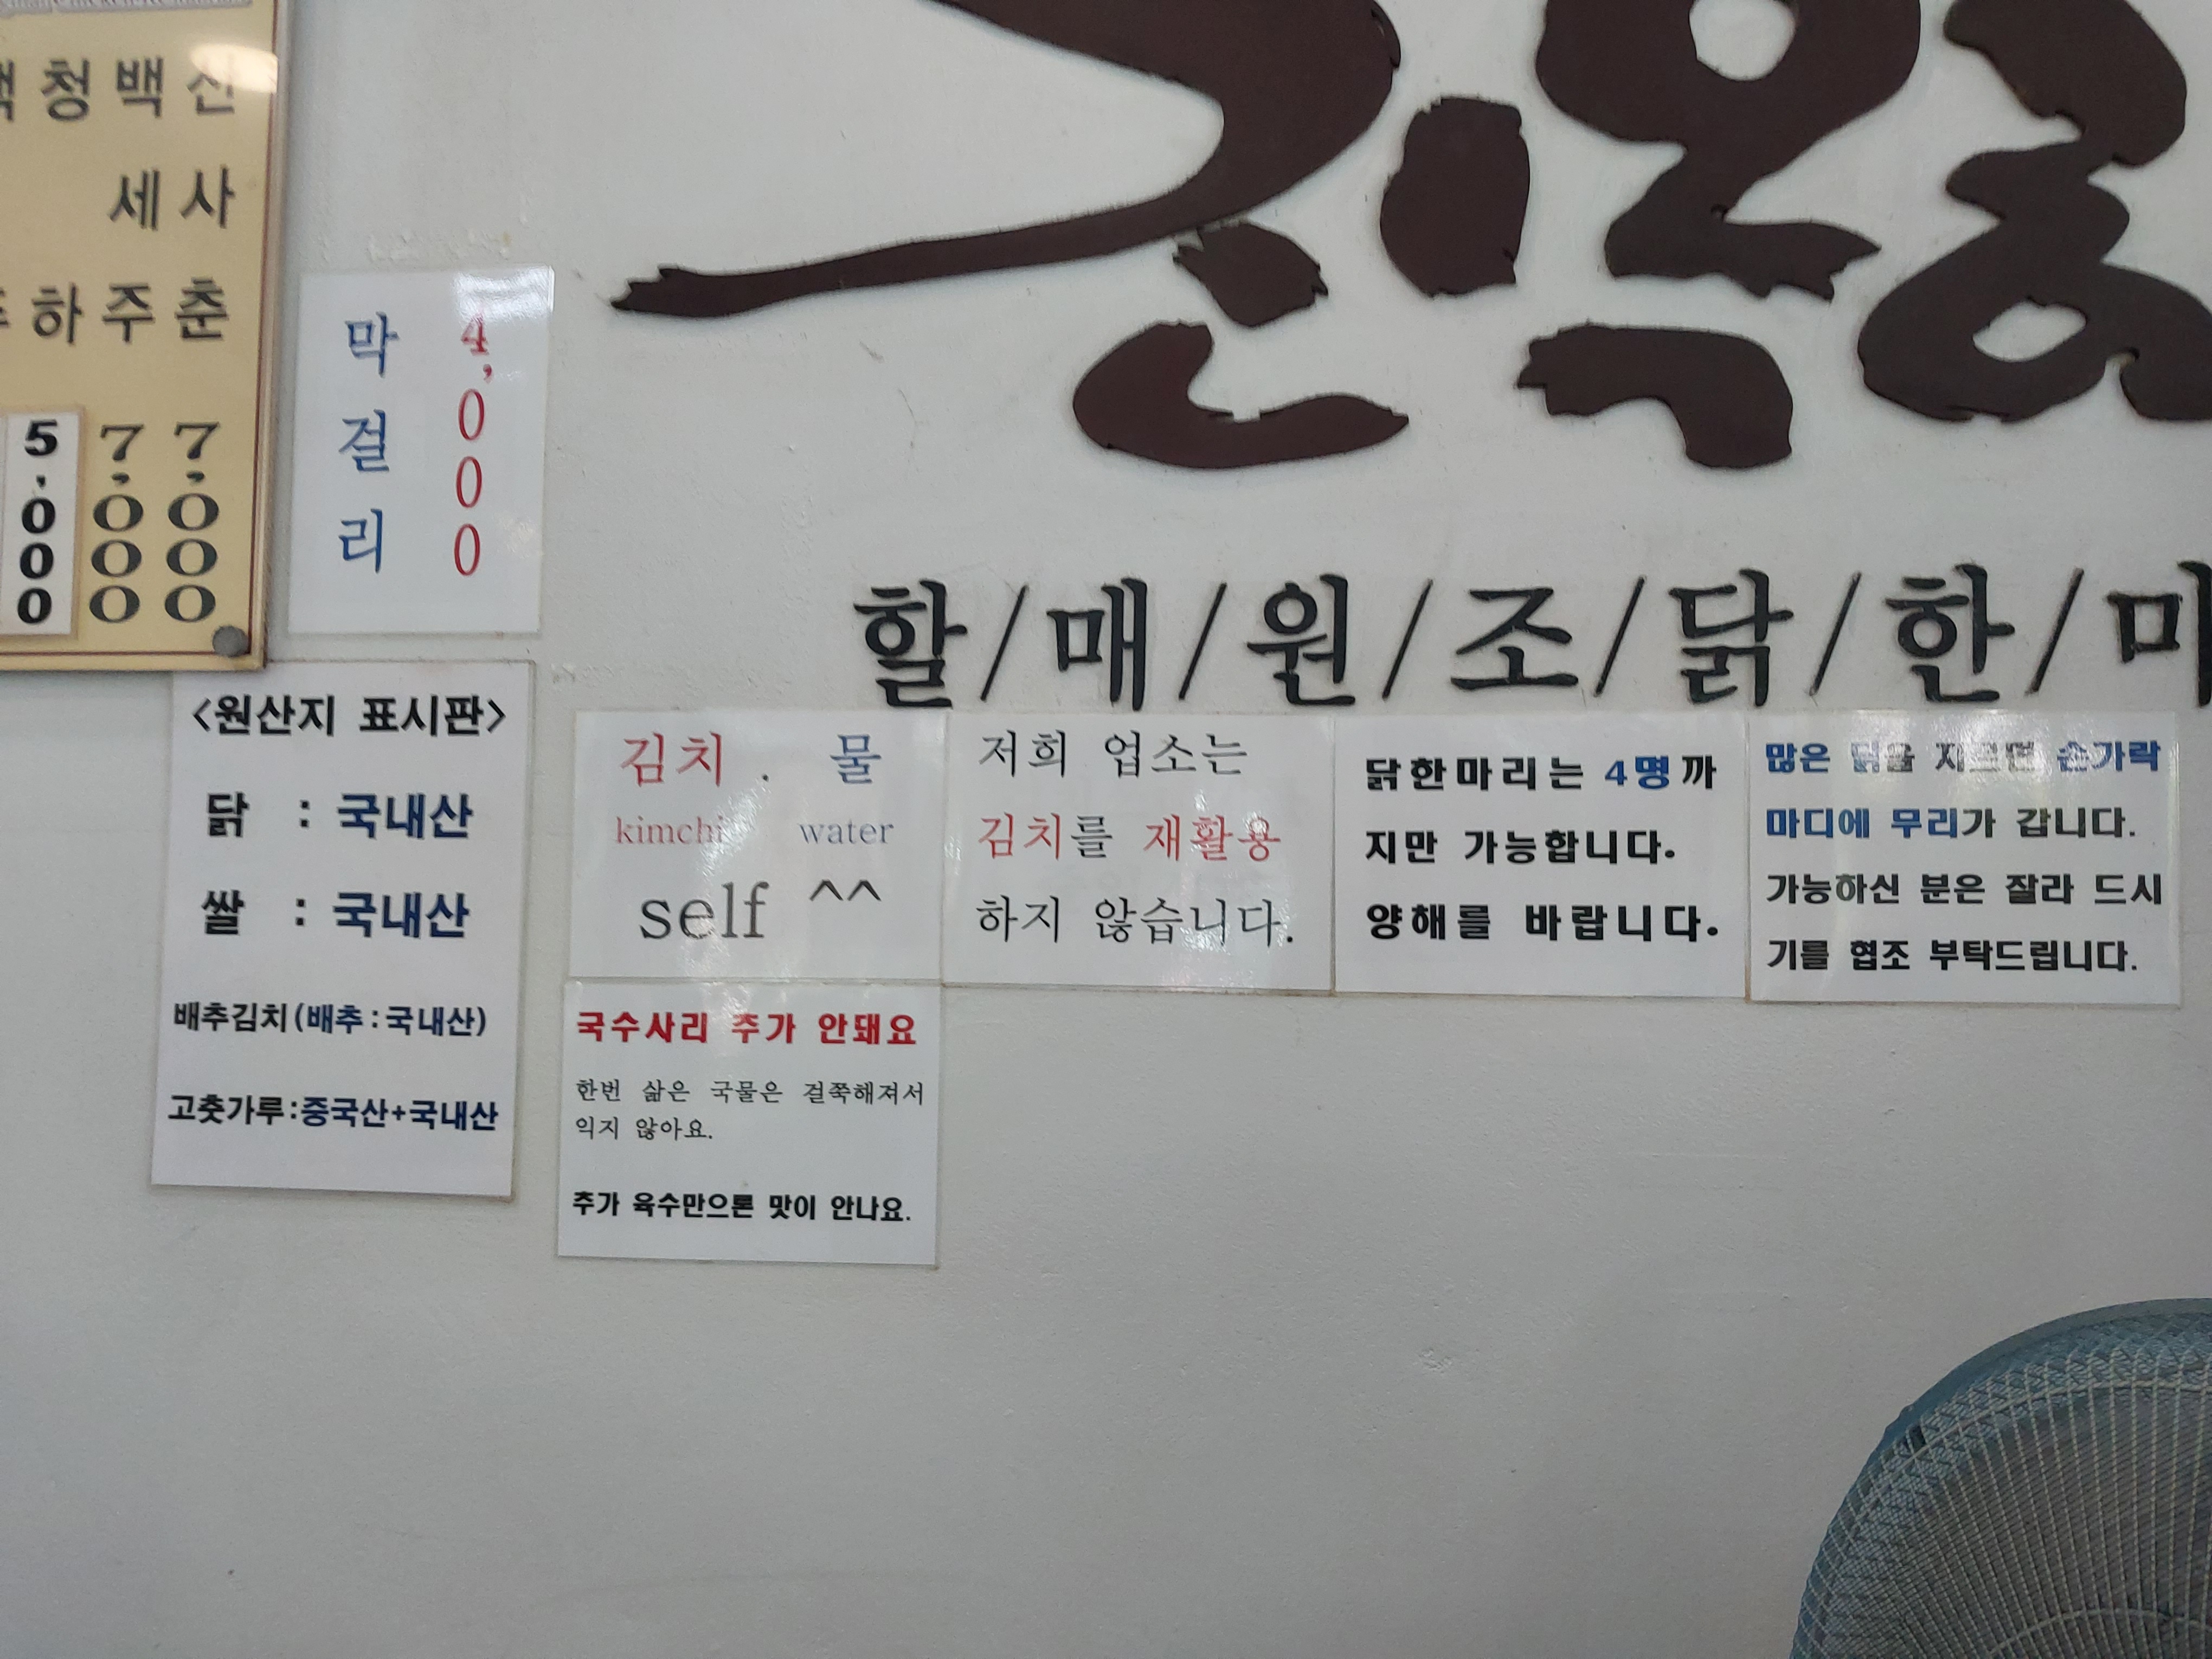 청백산
세사
하주춘
5,000
7,000
7,000
막걸리
4,000
진옥
할/매/원/조/닭/한/마
<원산지 표시판>
닭 : 국내산
쌀 : 국내산
배추김치(배추:국내산)
고춧가루:중국산+국내산
김치 . 물
kimchi water
self ^^
저희 업소는
김치를 재활용
하지 않습니다.
닭한마리는 4명까
지만 가능합니다.
양해를 바랍니다.
많은 닭을 자르면 손가락
마디에 무리가 갑니다.
가능하신 분은 잘라 드시
기를 협조 부탁드립니다.
국수사리 추가 안돼요
한번 삶은 국물은 걸쭉해져서
익지 않아요.
추가 육수만으론 맛이 안나요.